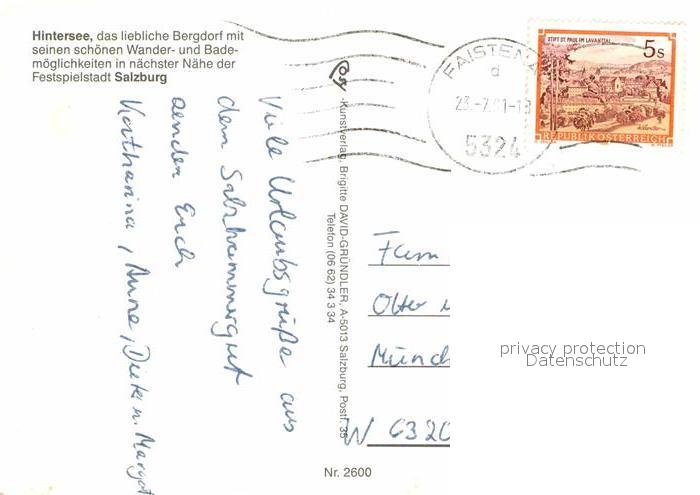 Hintersee, das liebliche Bergdorf mit
seinen schönen Wander- und Bade-
möglichkeiten in nächster Nähe der
Festspielstadt Salzburg
Viele Urlaubsgrüße aus
dem Salzkammergut
senden Euch
Katharina, Anne, Dieter u. Margot
Kunstverlag, Brigitte DAVID-GRÜNDLER, A-5013 Salzburg, Postf. 35
Telefon (06 62) 34 3 34
FAISTENA
d
23.-7.
5324
STIFT ST. PAUL IM LAVANTTAL
5s
REPUBLIK ÖSTERREICH
Fam
Otto
Münch
W 6320
privacy protection
Datenschutz
Nr. 2600